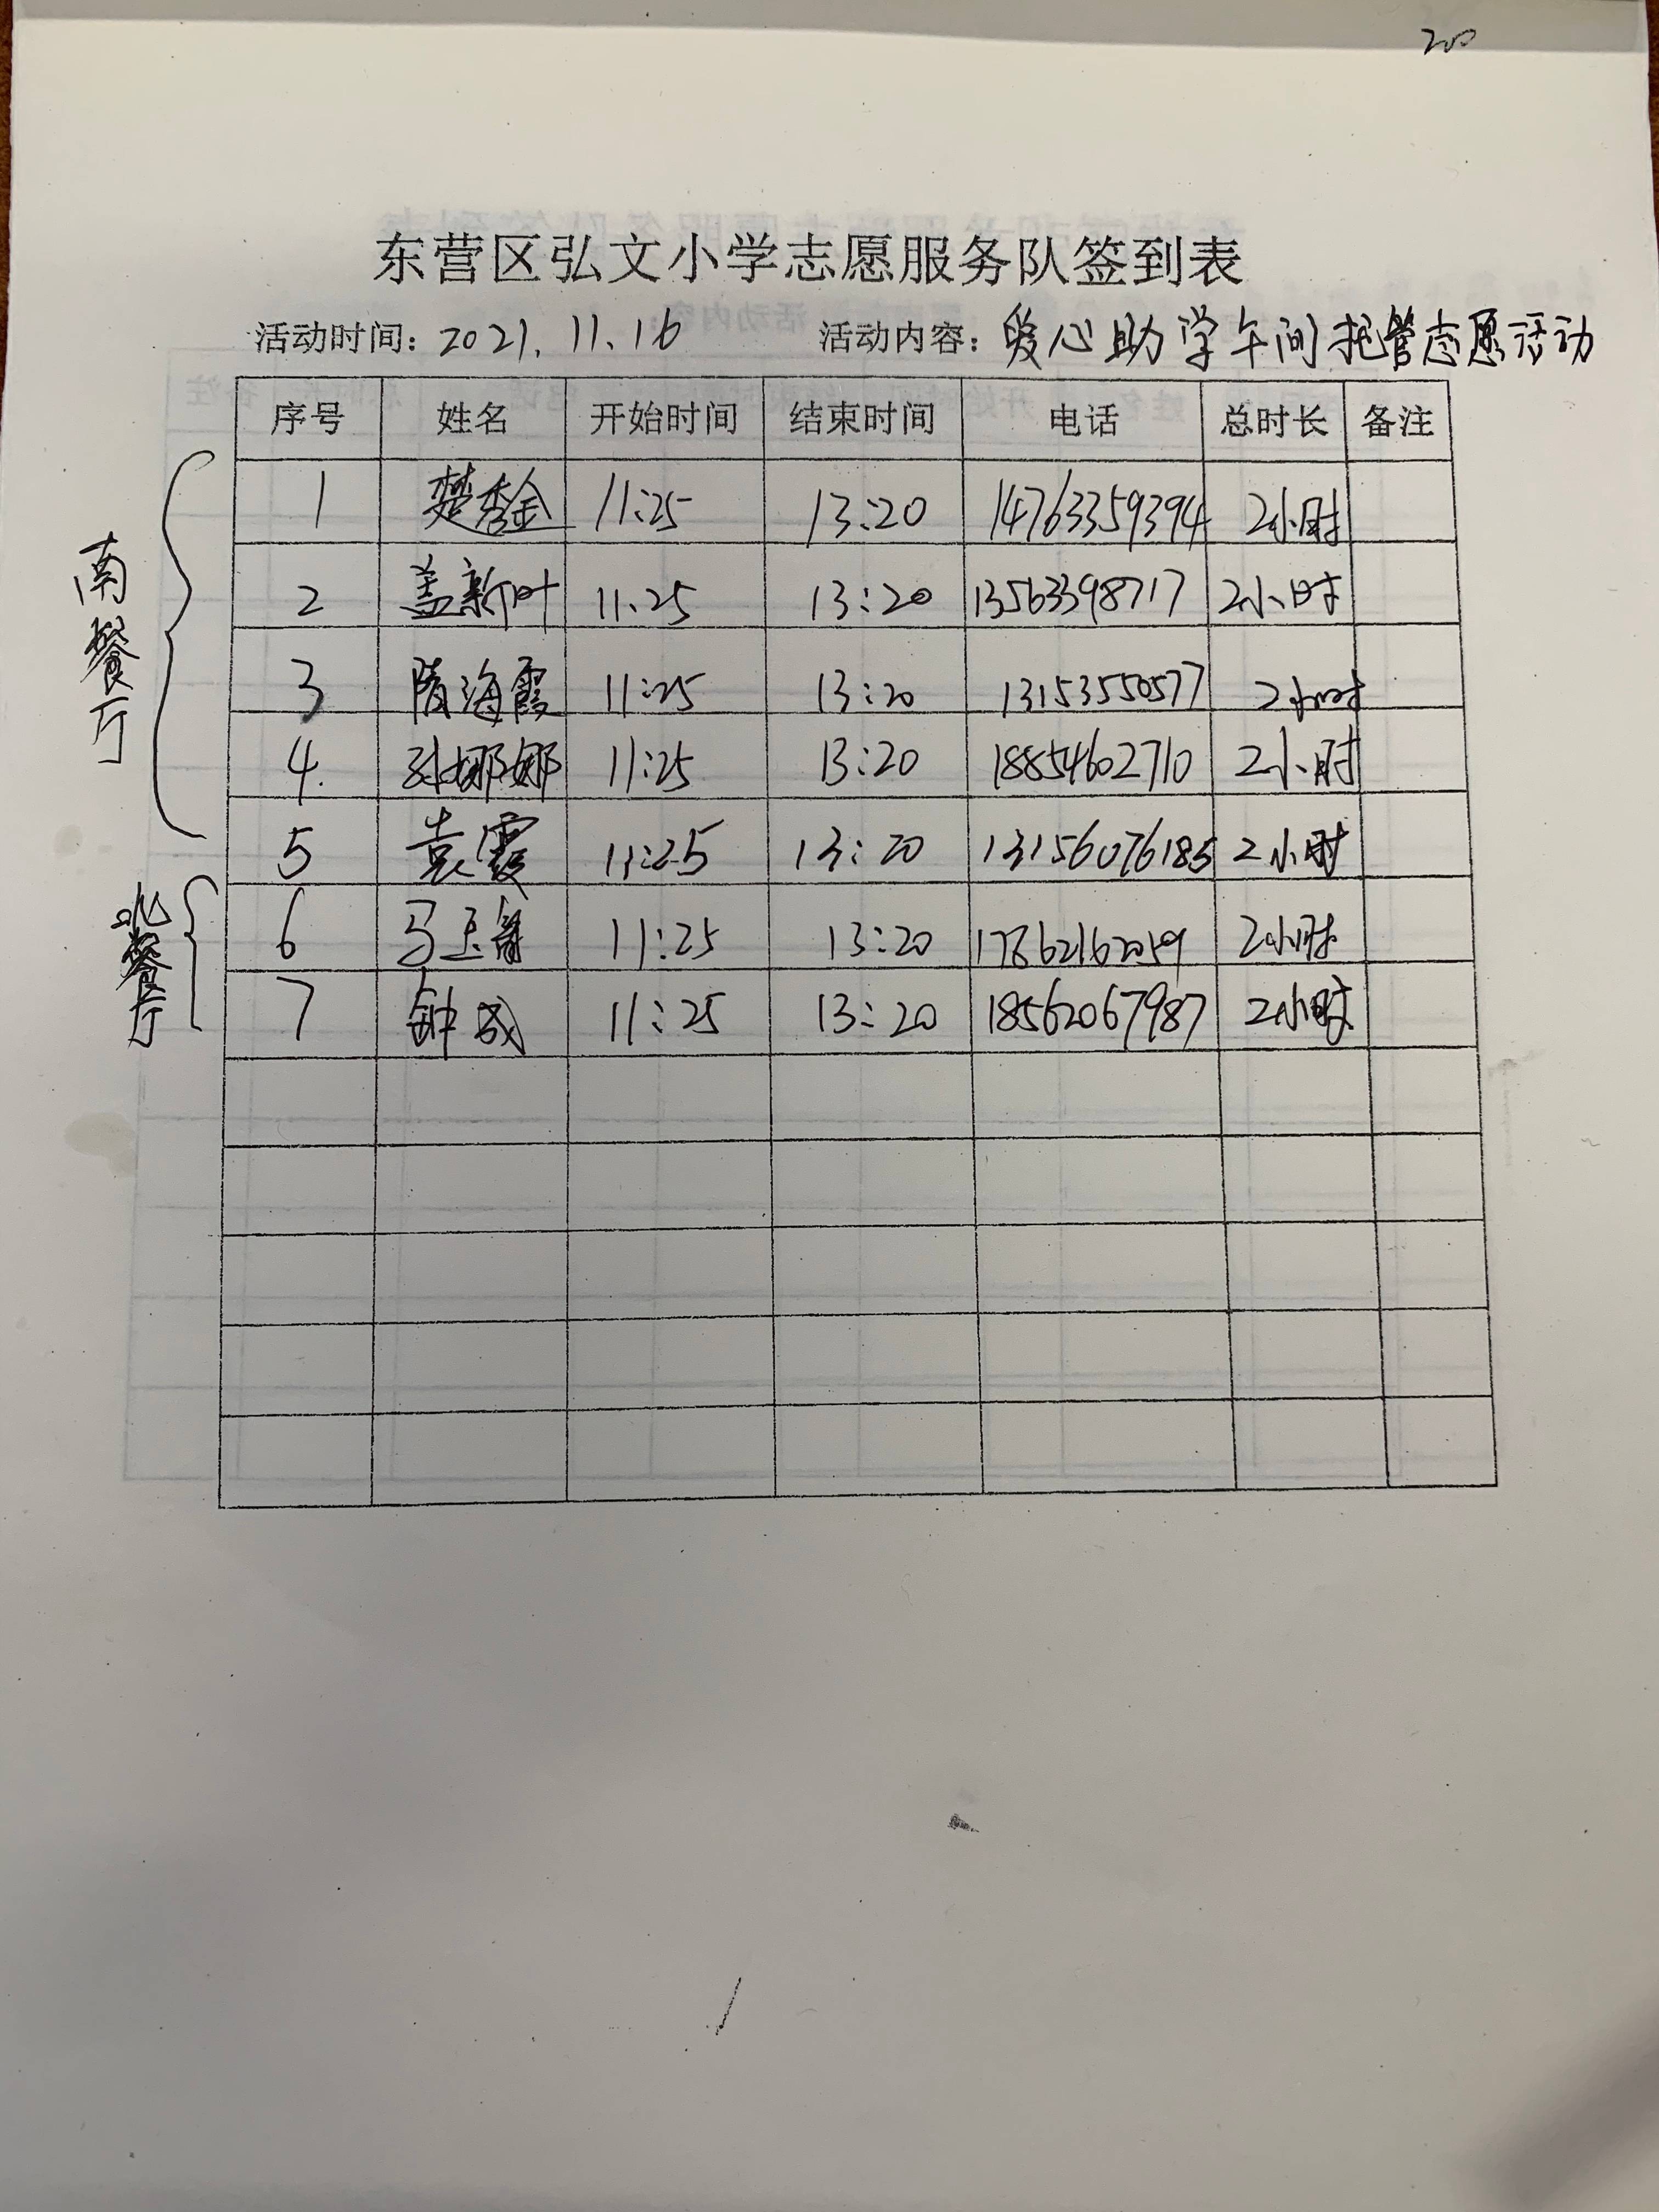 200
东营区弘文小学志愿服务队签到表
活动时间：2021.11.16 活动内容：爱心助学午间托管志愿活动
序号 姓名 开始时间 结束时间 电话 总时长 备注
南餐厅
1 楚秀金 11:25 13:20 14763359394 2小时
2 盖新叶 11:25 13:20 13563398717 2小时
3 隋海霞 11:25 13:20 13153550577 2小时
4. 孙娜娜 11:25 13:20 18854602710 2小时
5 袁霞 11:25 13:20 13156076185 2小时
北餐厅
6 马玉 11:25 13:20 17862162059 2小时
7 钟成 11:25 13:20 18562067987 2小时